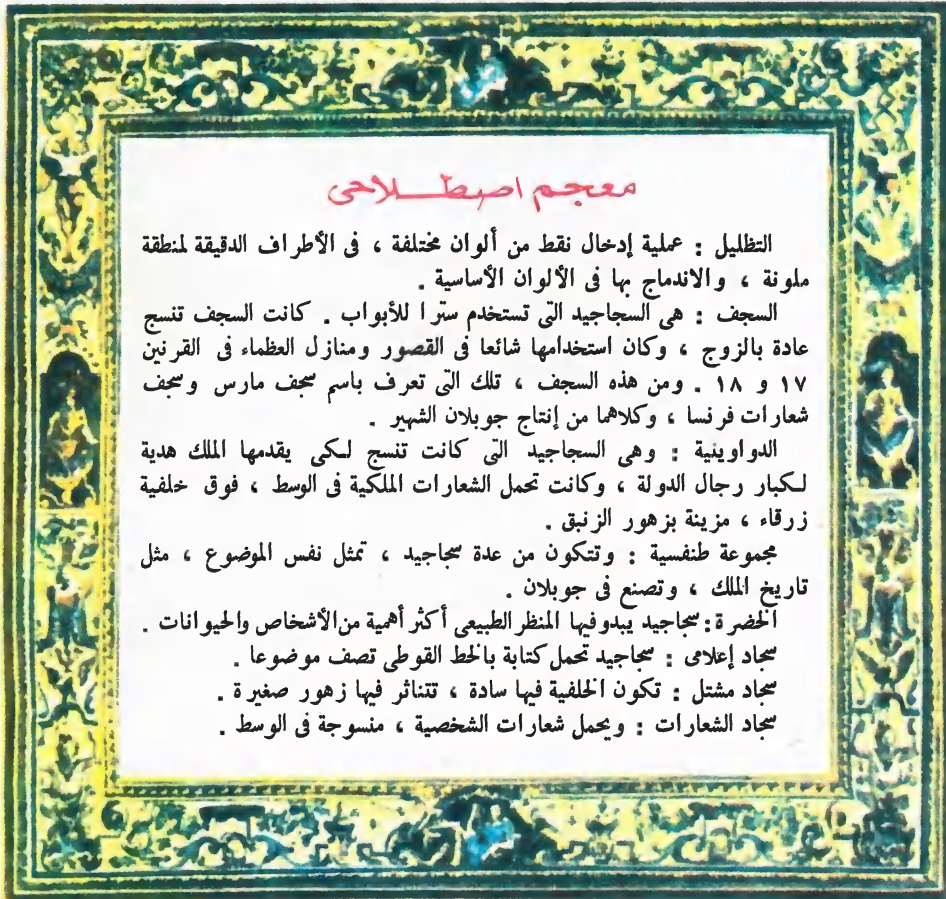 معجم اصطلاحى
التظليل : عملية إدخال نقط من ألوان مختلفة ، فى الأطراف الدقيقة لمنطقة
ملونة ، والاندماج بها فى الألوان الأساسية .
السجف : هى السجاجيد التى تستخدم سترا للأبواب . كانت السجف تنسج
عادة بالزوج ، وكان استخدامها شائعا فى القصور ومنازل العظماء فى القرنين
١٧ و ١٨ . ومن هذه السجف ، تلك التى تعرف باسم سجف مارس وسجف
شعارات فرنسا ، وكلاهما من إنتاج جوبلان الشهير .
الدواوينية : وهى السجاجيد التى كانت تنسج لكى يقدمها الملك هدية
لكبار رجال الدولة ، وكانت تحمل الشعارات الملكية فى الوسط ، فوق خلفية
زرقاء ، مزينة بزهور الزنبق .
مجموعة طنفسية : وتتكون من عدة سجاجيد ، تمثل نفس الموضوع ، مثل
تاريخ الملك ، وتصنع فى جوبلان .
الخضرة : سجاجيد يبدو فيها المنظر الطبيعى أكثر أهمية من الأشخاص والحيوانات .
سجاد إعلامى : سجاجيد تحمل كتابة بالخط القوطى تصف موضوعا .
سجاد مشتل : تكون الخلفية فيها سادة ، تتناثر فيها زهور صغيرة .
سجاد الشعارات : ويحمل شعارات الشخصية ، منسوجة فى الوسط .